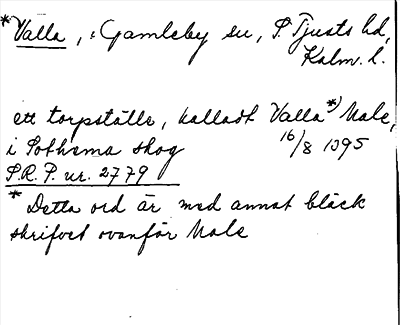 *Valla, i Gamleby sn, S. Tjusts hd,
Kalm. l.
ett torpställe, kalladt Valla*) Male,
i Sothema skog 16/8 1395
S.R.P. nr. 2779
* Detta ord är med annat bläck
skrifvet ovanför Male